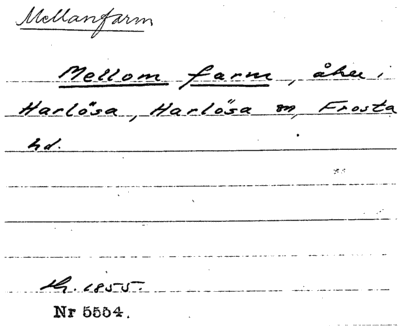 Mellanfarm
Mellom farm, åker i
Harlösa, Harlösa sn, Frosta
hd.
1855.
Nr 5554.